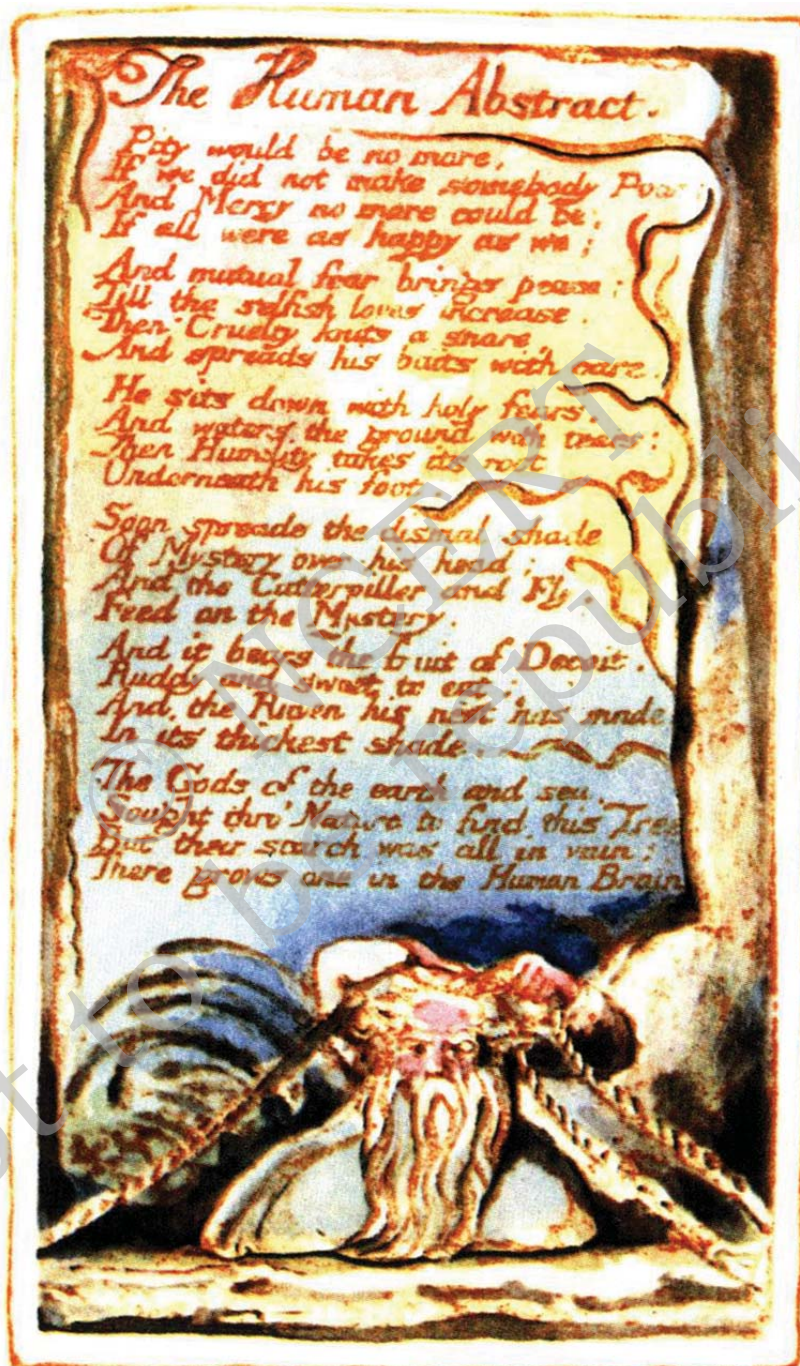 The Human Abstract.
Pity would be no more,
If we did not make somebody Poor:
And Mercy no more could be,
If all were as happy as we;
And mutual fear brings peace:
Till the selfish loves increase.
Then Cruelty knits a snare,
And spreads his baits with care.
He sits down with holy fears,
And waters the ground with tears:
Then Humility takes its root
Underneath his foot.
Soon spreads the dismal shade
Of Mystery over his head;
And the Catterpiller and Fly,
Feed on the Mystery.
And it bears the fruit of Deceit.
Ruddy and sweet to eat;
And the Raven his nest has made
In its thickest shade.
The Gods of the earth and sea,
Sought thro' Nature to find this Tree
But their search was all in vain:
There grows one in the Human Brain
© NCERT
not to be republi